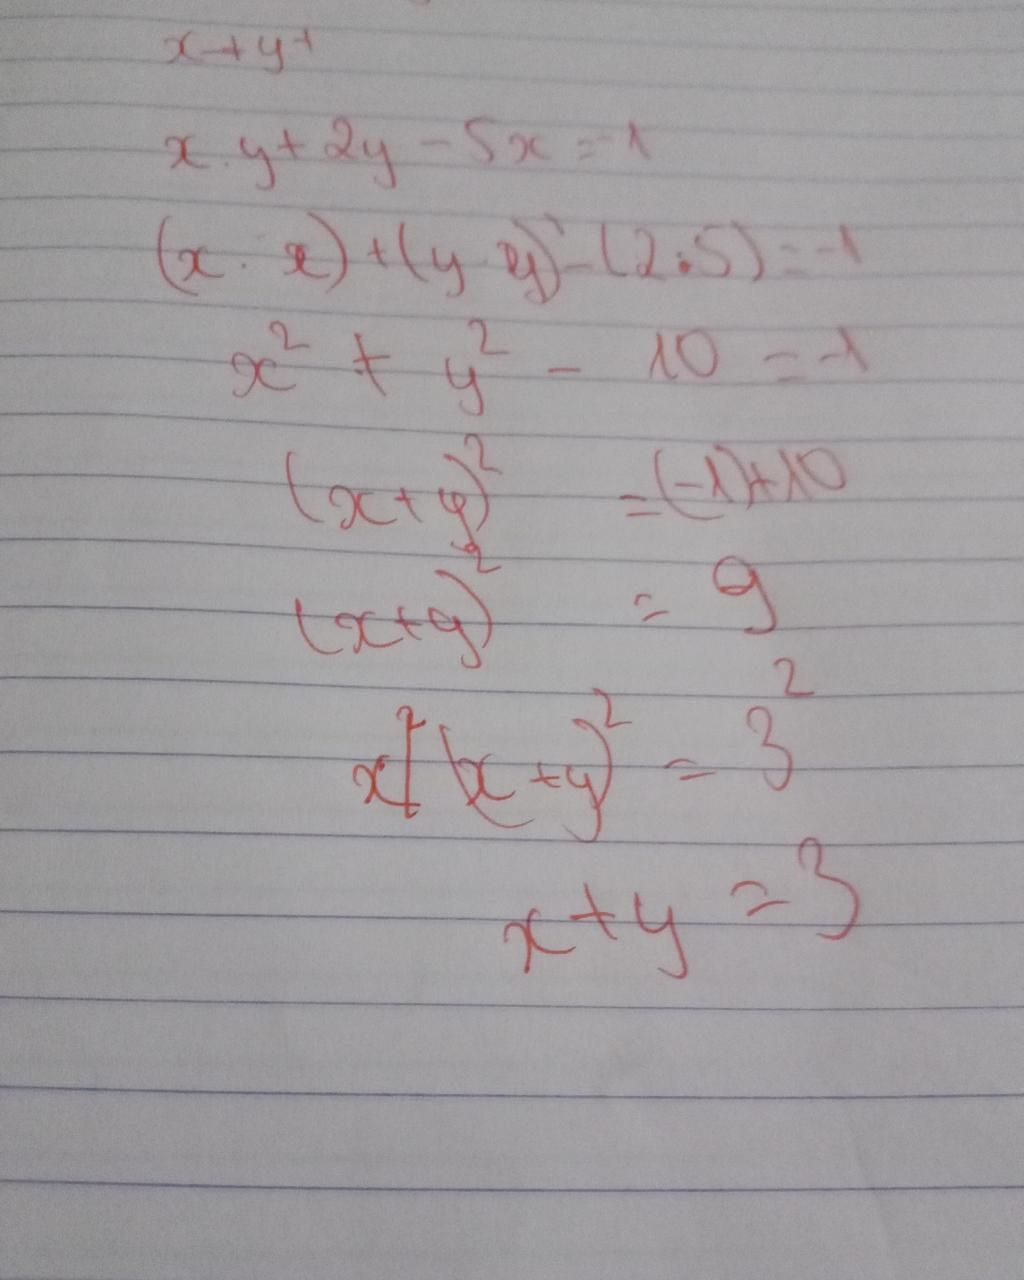 x+y+
x.y+2y-5x=-1
(x.x)+(y.y)-(2.5)=-1
x²+y²-10=-1
(x+y)²=(-1)+10
(x+y)²=9
(x+y)²=3²
x+y=3